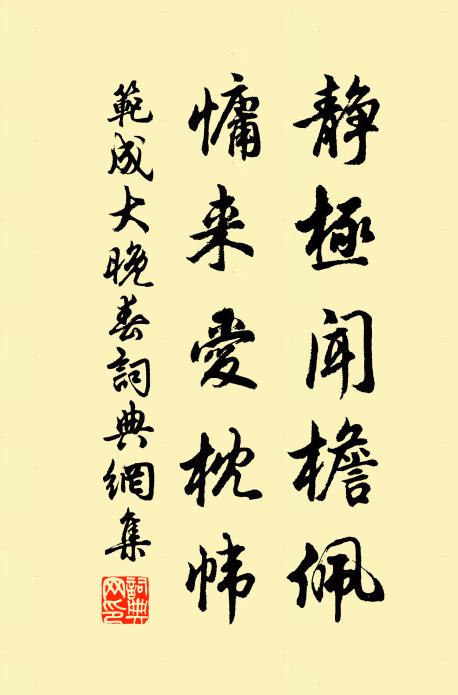 静極聞檐佩
慵来愛枕帏
範成大晚春詞典網集
詞典网印